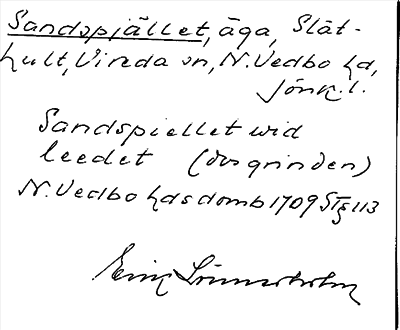 Sandspjället, äga, Slät-
hult, Vireda sn, N. Vedbo hd,
Jönk. l.
Sandspiellet wid
leedet (dvs grinden)
N. Vedbo hds domb 1709 STg 113